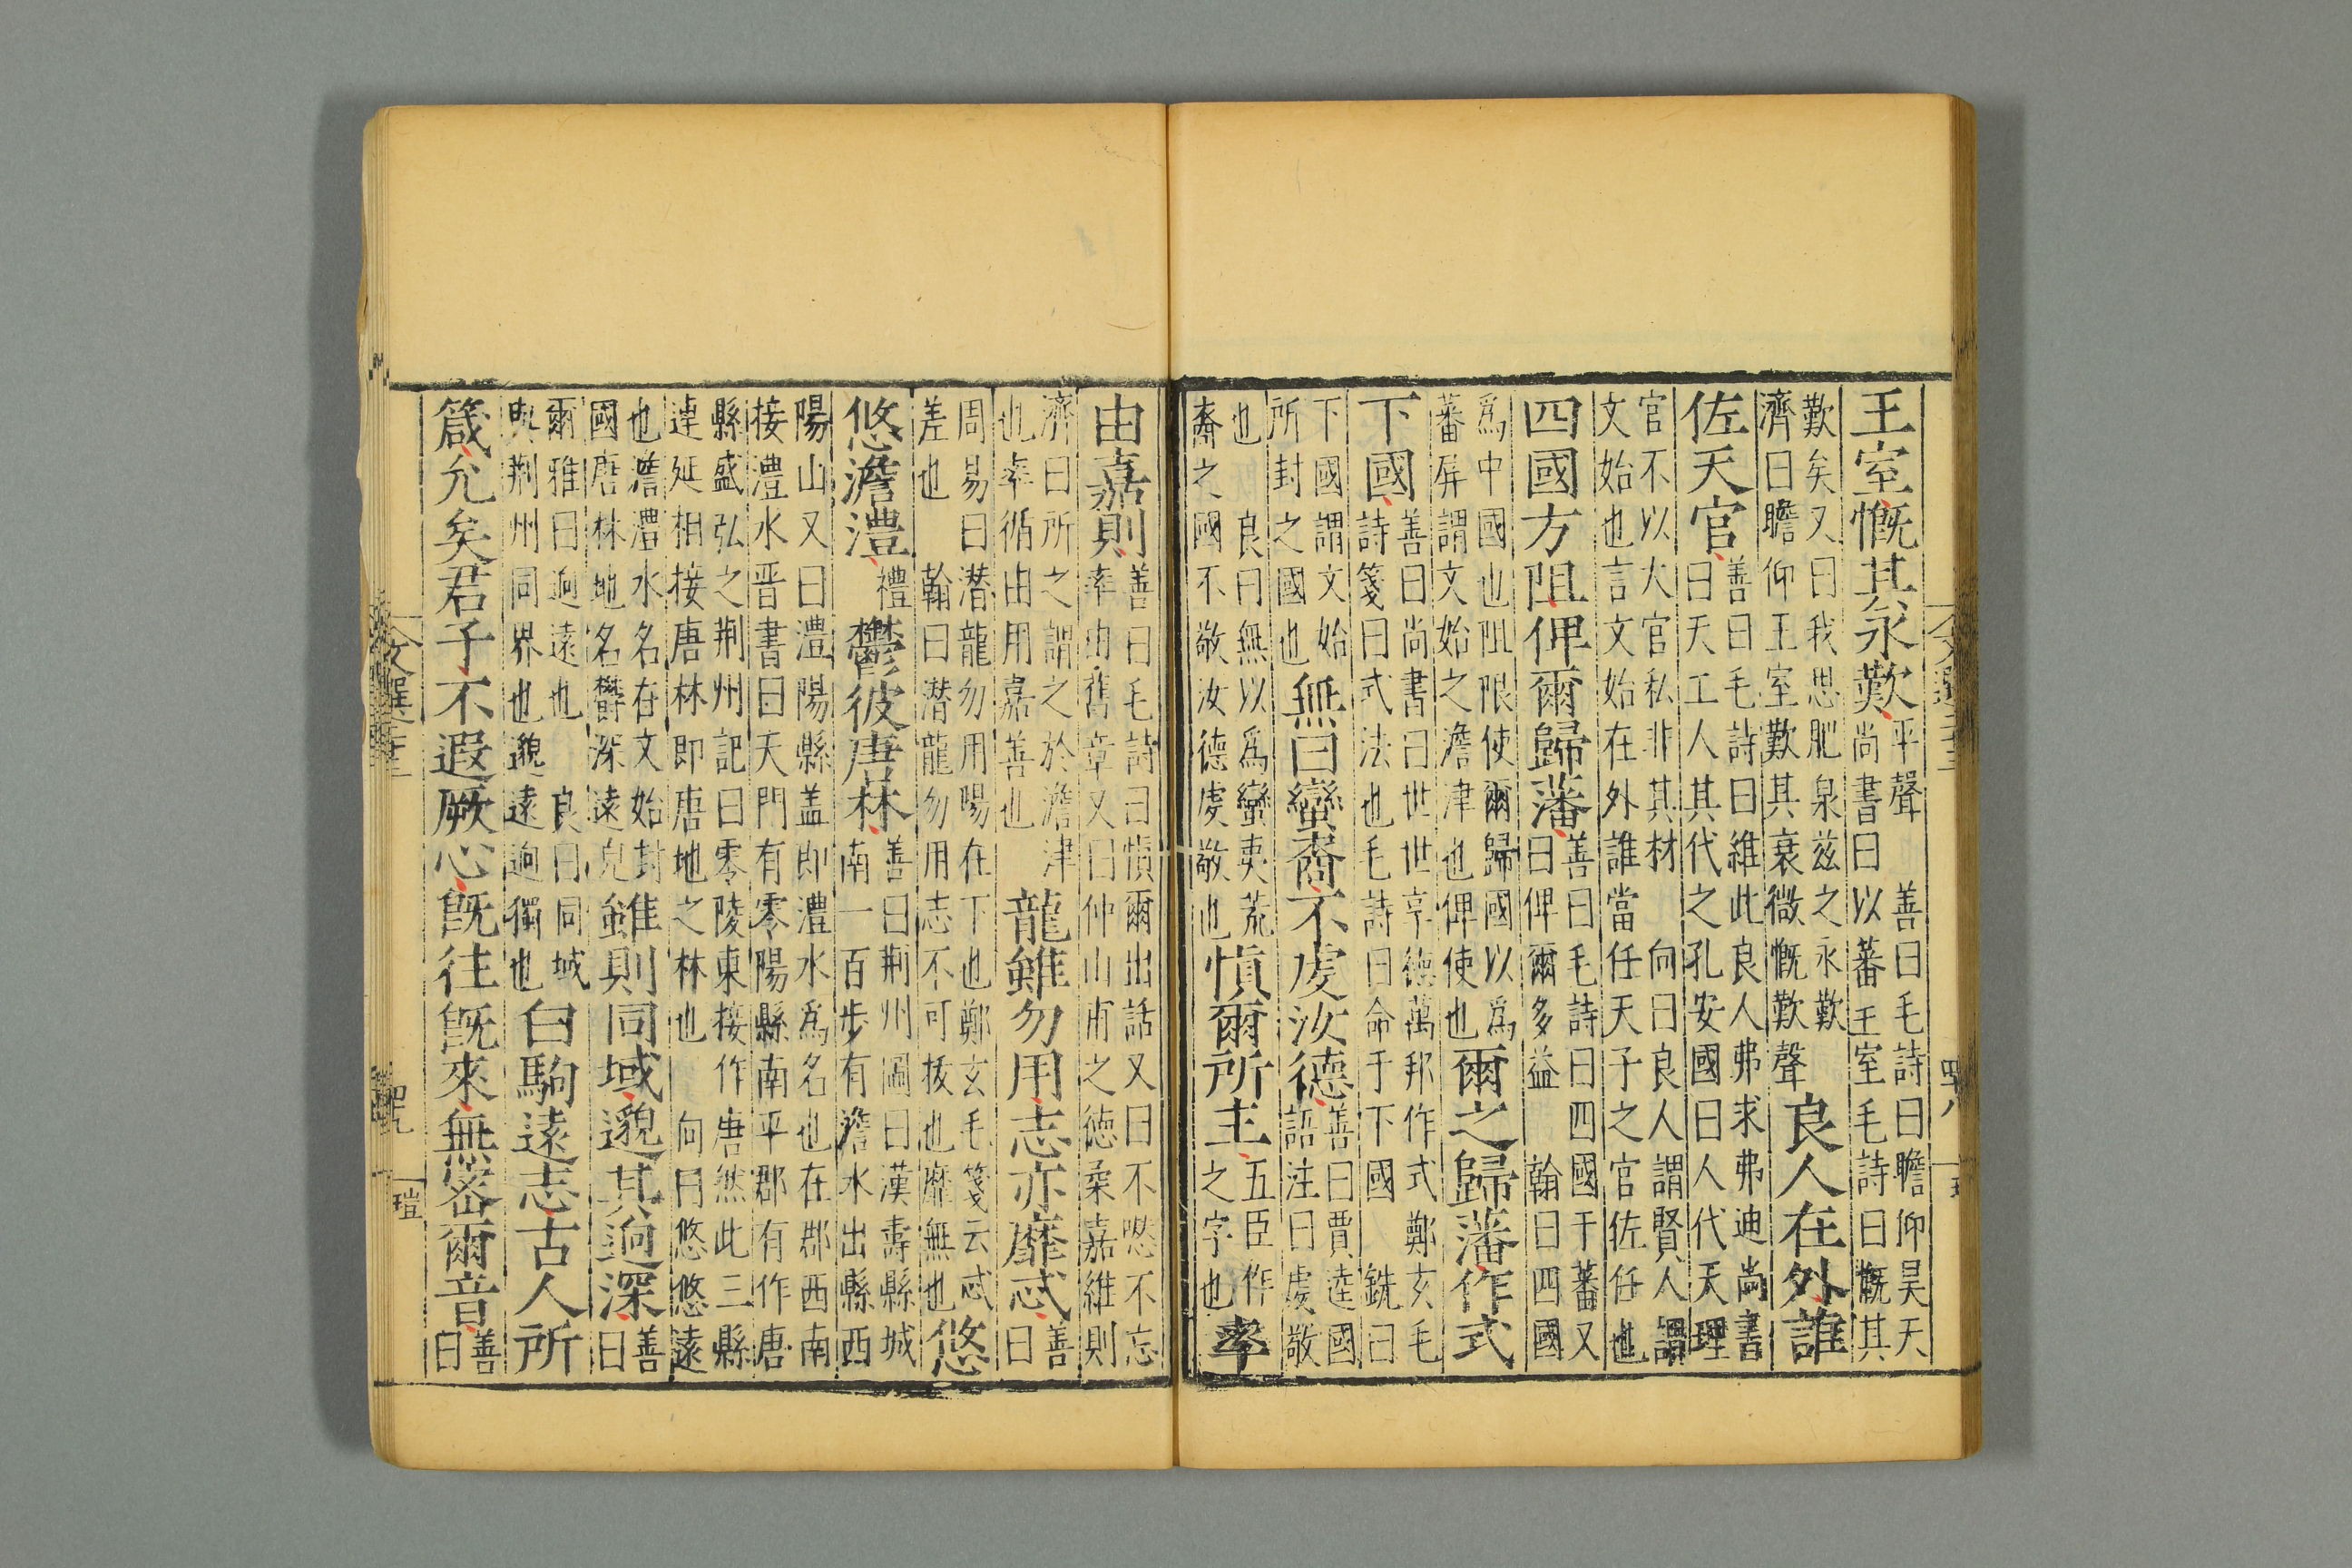 王室慨其永歎平聲 善曰毛詩曰瞻仰昊天
尚書曰以蕃王室毛詩曰慨其
歎矣又曰我思肥泉兹之永歎
濟曰瞻仰王室歎其衰微慨歎聲
良人在外誰
佐天官善曰毛詩曰維此良人弗求弗迪尚書
曰天工人其代之孔安國曰人代天理
官不以大官私非其材 向曰良人謂賢人謂
文始也言文始在外誰當任天子之官佐任也
四國方阻俾爾歸藩善曰毛詩曰四國于蕃又
曰俾爾多益 翰曰四國
爲中國也阻限使爾歸國以爲
蕃屏謂文始之澹津也俾使也
爾之歸藩作式
下國善曰尚書曰世世享德萬邦作式鄭玄毛
詩箋曰式法也毛詩曰命于下國 銑曰
下國謂文始
所封之國也
無曰蠻裔不虔汝德善曰賈逵國
語注曰虔敬
也 良曰無以爲蠻夷荒
裔之國不敬汝德虔敬也
慎爾所主五臣作
之字也
率
文選二十三 四八
由嘉則善曰毛詩曰慎爾出話又曰不愆不忘
率由舊章又曰仲山甫之德柔嘉維則
濟曰所之謂之於澹津
也率循由用嘉善也
龍雖勿用志亦靡忒善
曰
周易曰潜龍勿用陽在下也鄭玄毛箋云忒
差也 翰曰潜龍勿用志不可拔也靡無也
悠
悠澹澧禮鬱彼唐林善曰荆州圖曰漢壽縣城
南一百步有澹水出縣西
陽山又曰澧陽縣盖即澧水爲名也在郡西南
接澧水晋書曰天門有零陽縣南平郡有作唐
縣盛弘之荆州記曰零陵東接作唐然此三縣
連延相接唐林即唐地之林也 向曰悠悠遠
也澹澧水名在文始封
國唐林地名欝深遠皃
雖則同域邈其逈深善
曰
爾雅曰逈遠也 良曰同域
與荆州同界也邈遠逈獨也
白駒遠志古人所
箴允矣君子不遐厥心旣往旣來無密爾音善
曰
文選二十三 四九